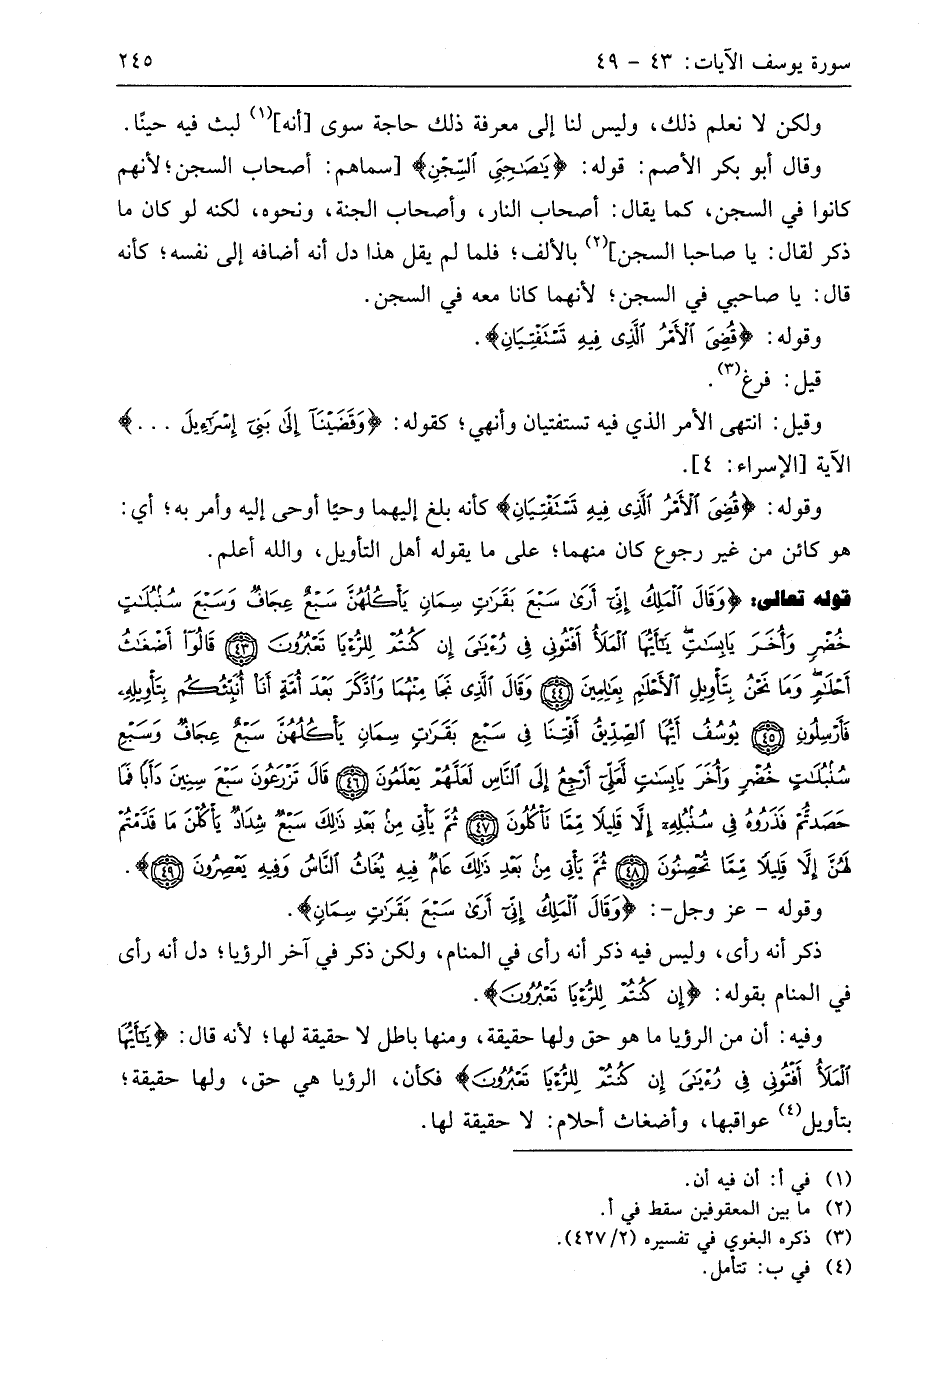 سورة يوسف الآيات: ٤٣ - ٤٩ ٢٤٥
ولكن لا نعلم ذلك، وليس لنا إلى معرفة ذلك حاجة سوى [أنه](١) لبث فيه حينًا.
وقال أبو بكر الأصم: قوله: ﴿يَٰصَٰحِبَيِ ٱلسِّجْنِ﴾ [سماهم: أصحاب السجن؛ لأنهم
كانوا في السجن، كما يقال: أصحاب النار، وأصحاب الجنة، ونحوه، لكنه لو كان ما
ذكر لقال: يا صاحبا السجن](٢) بالألف؛ فلما لم يقل هذا دل أنه أضافه إلى نفسه؛ كأنه
قال: يا صاحبي في السجن؛ لأنهما كانا معه في السجن.
وقوله: ﴿قُضِيَ ٱلْأَمْرُ ٱلَّذِي فِيهِ تَسْتَفْتِيَانِ﴾.
قيل: فرغ(٣).
وقيل: انتهى الأمر الذي فيه تستفتيان وأنهي؛ كقوله: ﴿وَقَضَيْنَآ إِلَىٰ بَنِيٓ إِسْرَٰٓءِيلَ ...﴾
الآية [الإسراء: ٤].
وقوله: ﴿قُضِيَ ٱلْأَمْرُ ٱلَّذِي فِيهِ تَسْتَفْتِيَانِ﴾ كأنه بلغ إليهما وحيًا أوحى إليه وأمر به؛ أي:
هو كائن من غير رجوع كان منهما؛ على ما يقوله أهل التأويل، والله أعلم.
قوله تعالى: ﴿وَقَالَ ٱلْمَلِكُ إِنِّيٓ أَرَىٰ سَبْعَ بَقَرَٰتٍ سِمَانٍ يَأْكُلُهُنَّ سَبْعٌ عِجَافٌ وَسَبْعَ سُنۢبُلَٰتٍ
خُضْرٍ وَأُخَرَ يَابِسَٰتٍ يَٰٓأَيُّهَا ٱلْمَلَأُ أَفْتُونِي فِي رُءْيَٰيَ إِن كُنتُمْ لِلرُّءْيَا تَعْبُرُونَ ﴿٤٣﴾ قَالُوٓا۟ أَضْغَٰثُ
أَحْلَٰمٍ وَمَا نَحْنُ بِتَأْوِيلِ ٱلْأَحْلَٰمِ بِعَٰلِمِينَ ﴿٤٤﴾ وَقَالَ ٱلَّذِي نَجَا مِنْهُمَا وَٱدَّكَرَ بَعْدَ أُمَّةٍ أَنَا۠ أُنَبِّئُكُم بِتَأْوِيلِهِۦ
فَأَرْسِلُونِ ﴿٤٥﴾ يُوسُفُ أَيُّهَا ٱلصِّدِّيقُ أَفْتِنَا فِي سَبْعِ بَقَرَٰتٍ سِمَانٍ يَأْكُلُهُنَّ سَبْعٌ عِجَافٌ وَسَبْعِ
سُنۢبُلَٰتٍ خُضْرٍ وَأُخَرَ يَابِسَٰتٍ لَّعَلِّيٓ أَرْجِعُ إِلَى ٱلنَّاسِ لَعَلَّهُمْ يَعْلَمُونَ ﴿٤٦﴾ قَالَ تَزْرَعُونَ سَبْعَ سِنِينَ دَأَبًا فَمَا
حَصَدتُّمْ فَذَرُوهُ فِي سُنۢبُلِهِۦٓ إِلَّا قَلِيلًا مِّمَّا تَأْكُلُونَ ﴿٤٧﴾ ثُمَّ يَأْتِي مِنۢ بَعْدِ ذَٰلِكَ سَبْعٌ شِدَادٌ يَأْكُلْنَ مَا قَدَّمْتُمْ
لَهُنَّ إِلَّا قَلِيلًا مِّمَّا تُحْصِنُونَ ﴿٤٨﴾ ثُمَّ يَأْتِي مِنۢ بَعْدِ ذَٰلِكَ عَامٌ فِيهِ يُغَاثُ ٱلنَّاسُ وَفِيهِ يَعْصِرُونَ ﴿٤٩﴾﴾.
وقوله - عز وجل-: ﴿وَقَالَ ٱلْمَلِكُ إِنِّيٓ أَرَىٰ سَبْعَ بَقَرَٰتٍ سِمَانٍ﴾.
ذكر أنه رأى، وليس فيه ذكر أنه رأى في المنام، ولكن ذكر في آخر الرؤيا؛ دل أنه رأى
في المنام بقوله: ﴿إِن كُنتُمْ لِلرُّءْيَا تَعْبُرُونَ﴾.
وفيه: أن من الرؤيا ما هو حق ولها حقيقة، ومنها باطل لا حقيقة لها؛ لأنه قال: ﴿يَٰٓأَيُّهَا
ٱلْمَلَأُ أَفْتُونِي فِي رُءْيَٰيَ إِن كُنتُمْ لِلرُّءْيَا تَعْبُرُونَ﴾ فكأن، الرؤيا هي حق، ولها حقيقة؛
بتأويل(٤) عواقبها، وأضغاث أحلام: لا حقيقة لها.
(١) في أ: أن فيه أن.
(٢) ما بين المعقوفين سقط في أ.
(٣) ذكره البغوي في تفسيره (٤٢٧/٢).
(٤) في ب: تتأمل.